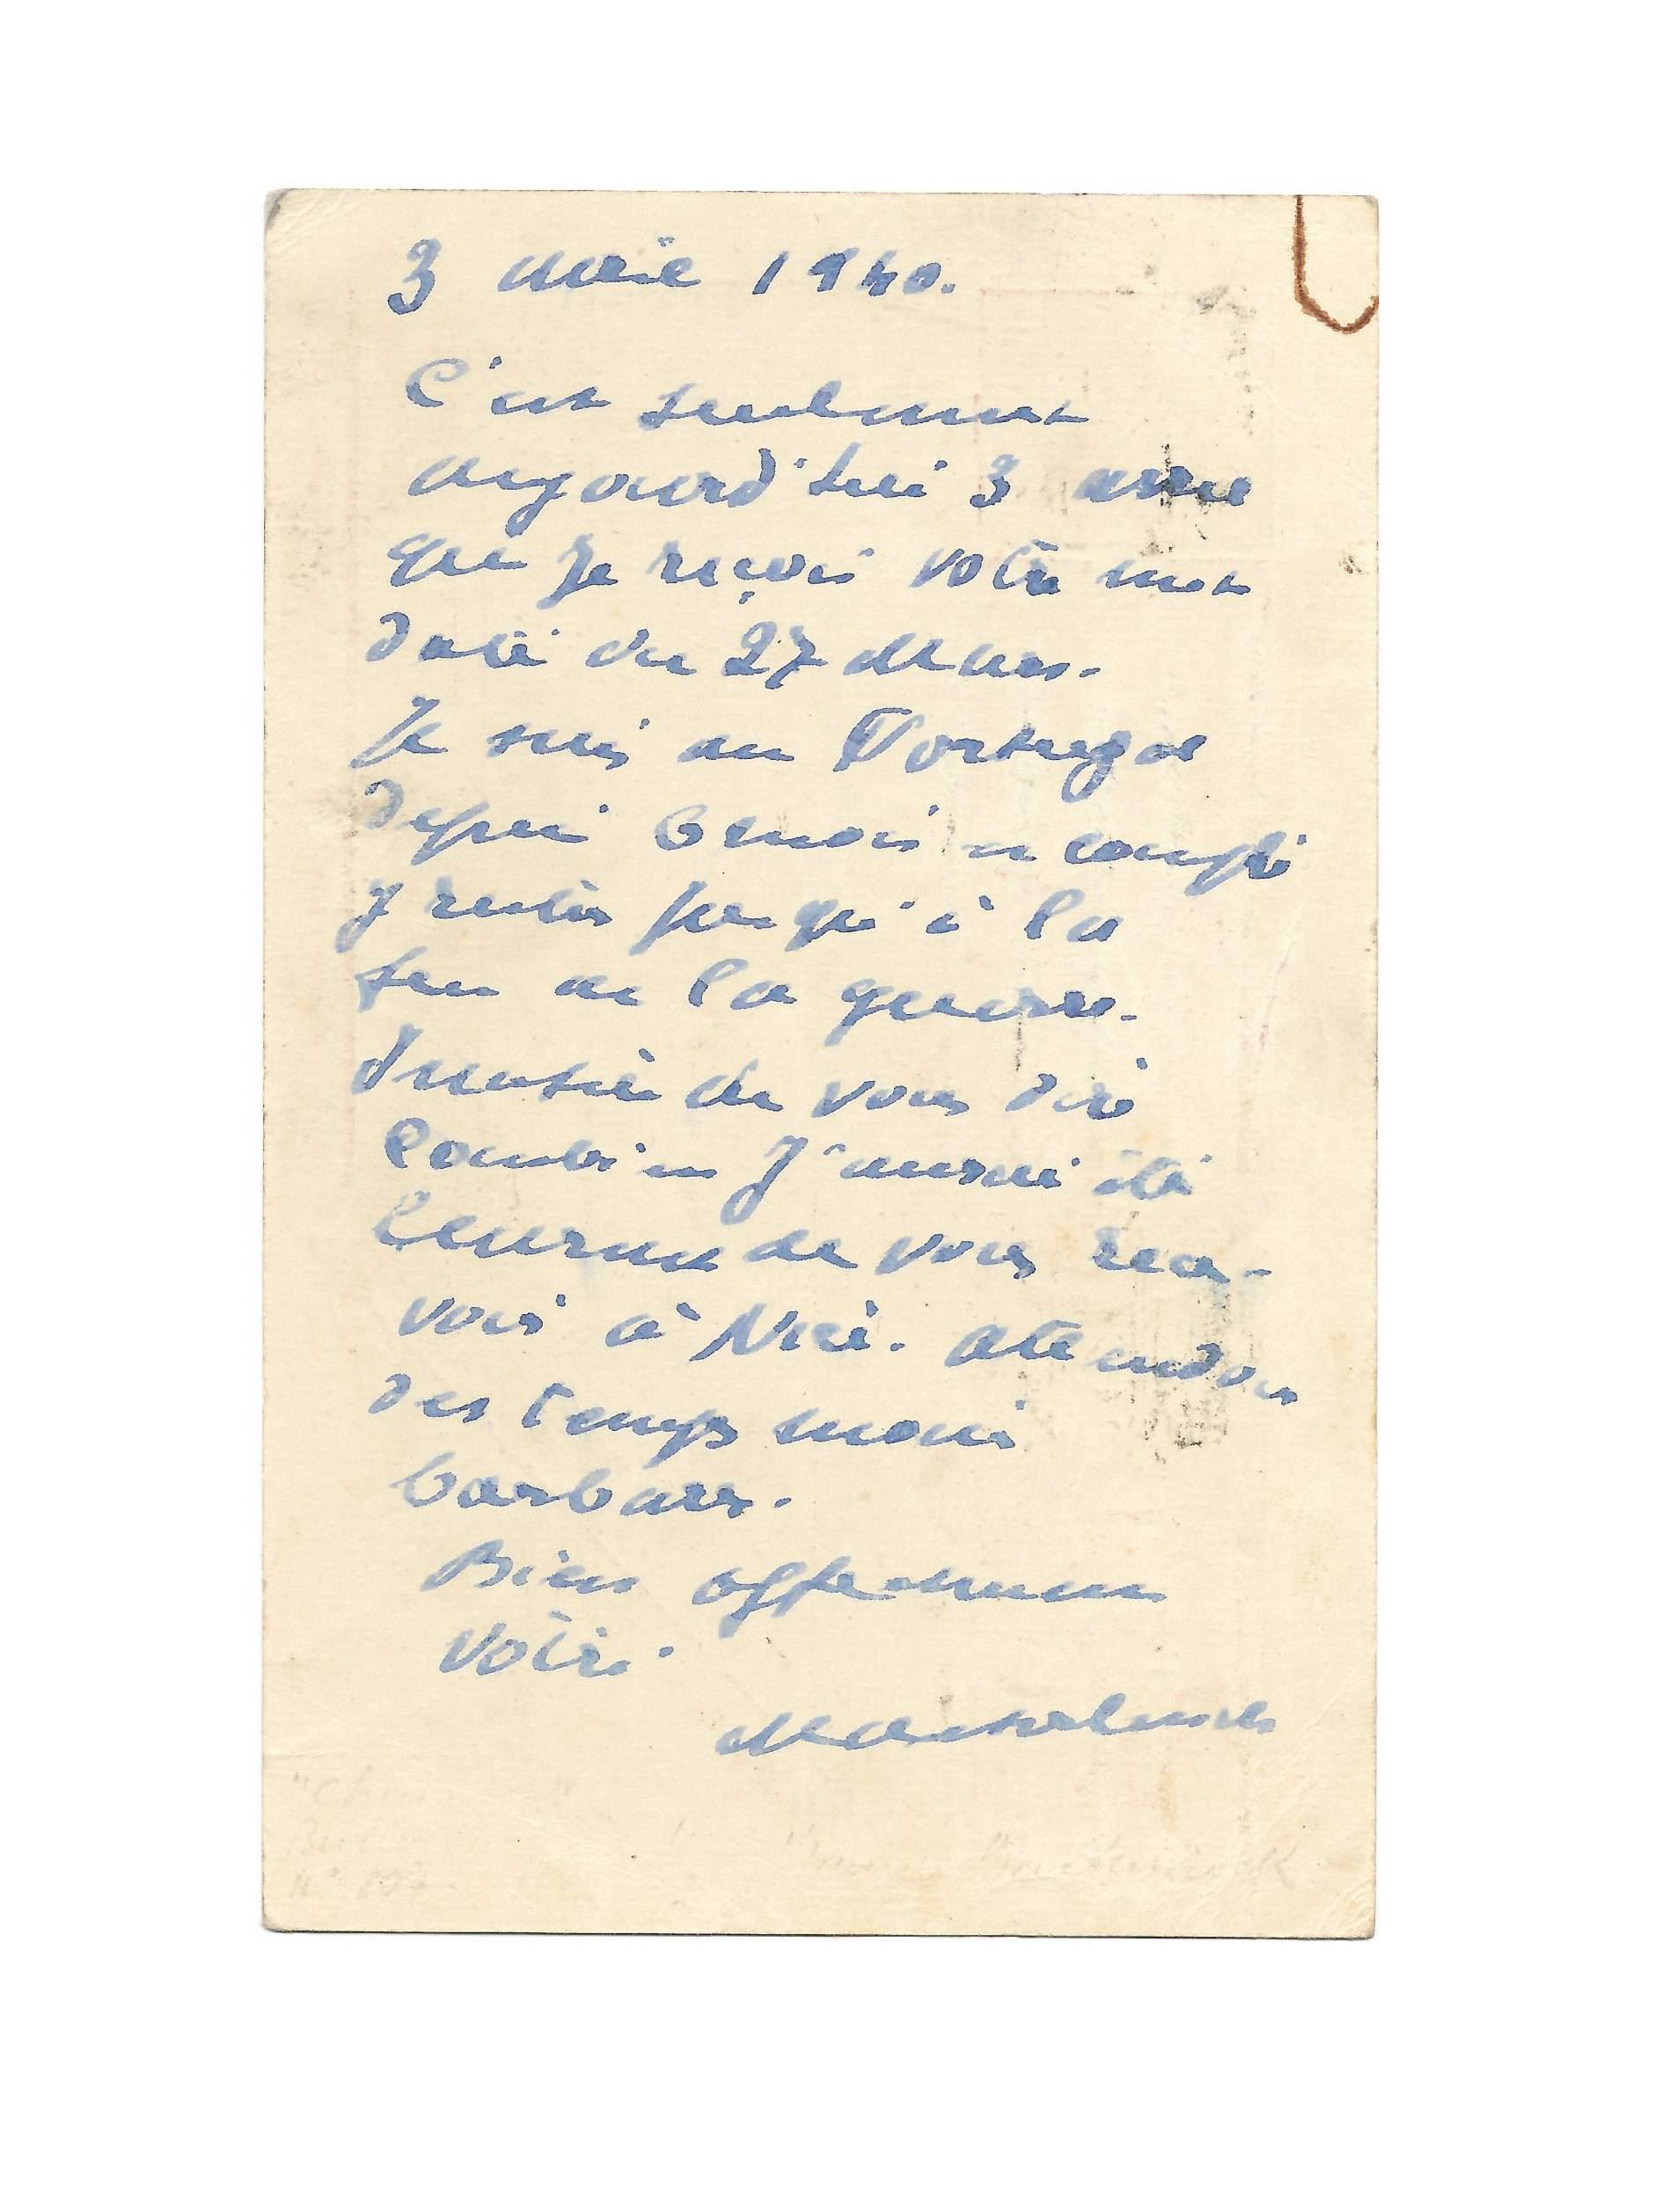 3 avril 1940.
C'est seulement
aujourd'hui 3 avril
que je reçois votre mot
daté du 27 Mars.
Je suis au Portugal
depuis 6 mois et compte
y rester jusqu'à la
fin de la guerre.
Inutile de vous dire
combien j'aurais été
heureux de vous rece-
voir à Nice. Attendons
des temps moins
barbares.
Bien affectueusement
vôtre.
Maeterlinck
Maeterlinck